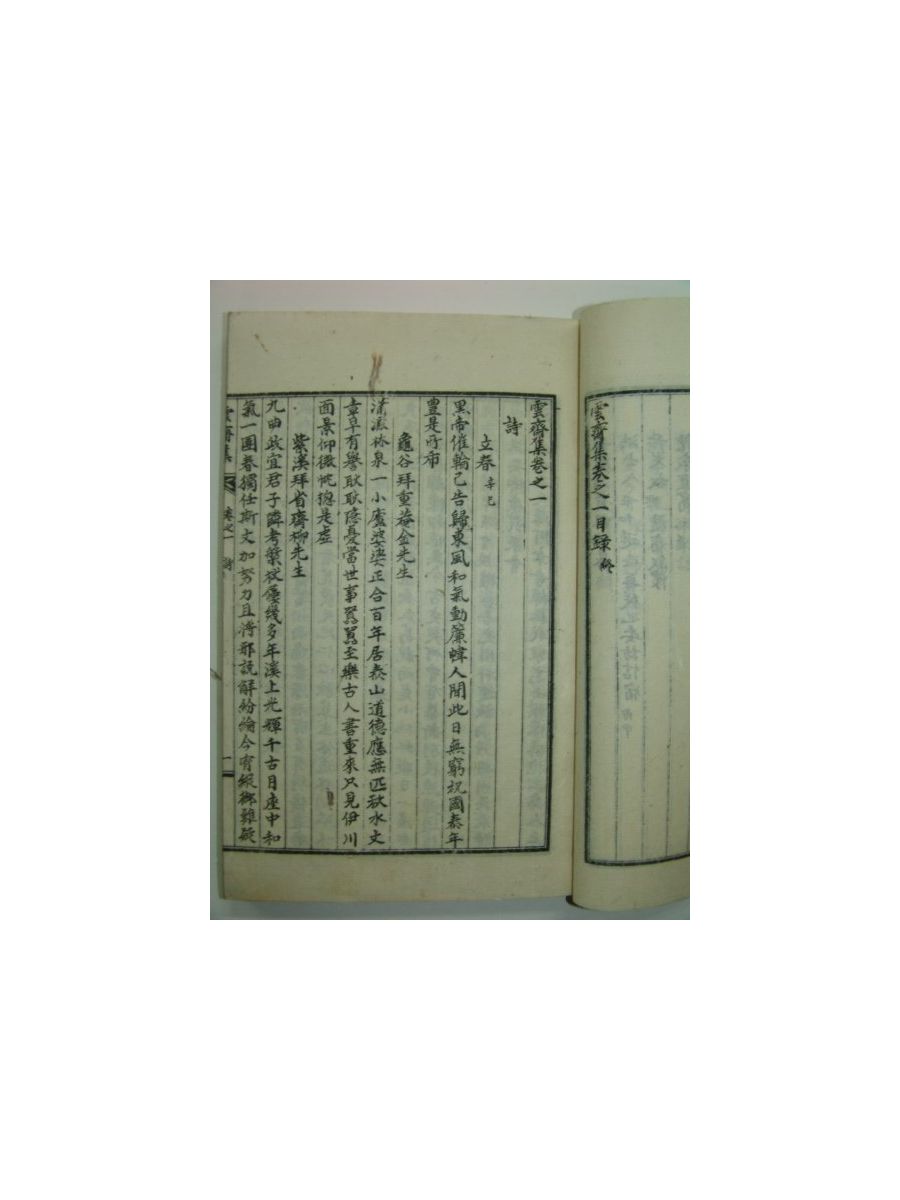 雲齋集卷之一目錄 終
雲齋集卷之一
詩
立春 辛巳
黑帝催輪已告歸東風和氣動簾幃人間此日無窮祝國泰年
豊是所希
龜谷拜重菴金先生
瀟灑林泉一小廬婆娑正合百年居泰山道德應無匹秋水文
章早有譽耿耿隱憂當世事囂囂至樂古人書重來只見伊川
面景仰微忱摠是虛
紫溪拜省齋柳先生
九曲政宜君子隣考槃栻僾幾多年溪上光輝千古月座中和
氣一團春獨任斯文加努力且將邪說解紛綸今宵緩御難疑
雲齋集 卷之一 詩 一